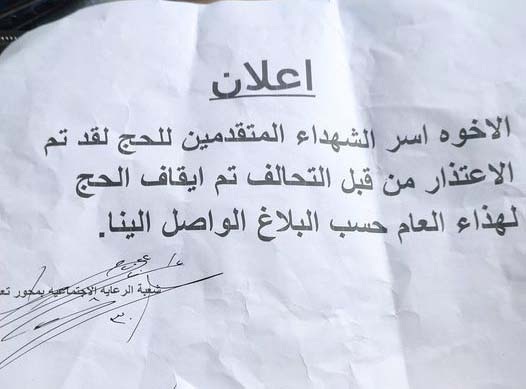 اعلان
الاخوه اسر الشهداء المتقدمين للحج لقد تم
الاعتذار من قبل التحالف تم ايقاف الحج
لهذاء العام حسب البلاغ الواصل الينا.
شعبة الرعايه الاجتماعيه بمحور تع